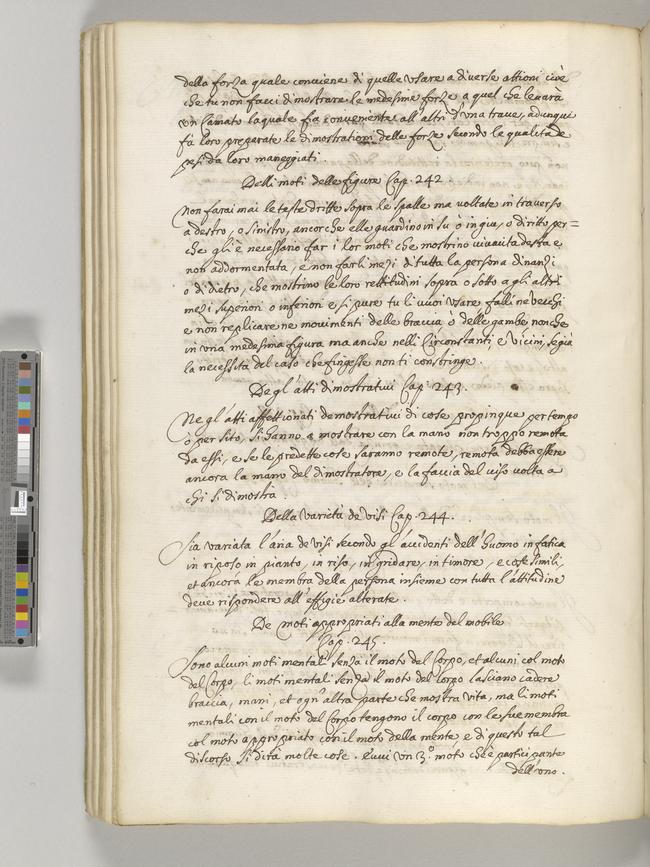 della forza quale conviene di quelle usare a diverse attioni cioè
che tu non facci dimostrare le medesime forze a quel che levarà
un lamato laquale fia conveniente all'altri d'una trave, adunqui
fà loro preparate le dimostrationi delle forze secondo le qualità de
pesi da loro maneggiati.
Delli moti delle figure Cap. 242.
Non farai mai le teste dritte sopra le spalle ma voltate in traverso
a destro, o sinistro, ancor che elle guardino in sù ò in giu, o diritto per=
che gli è necessario far i lor moti che mostrino vivacità desta e
non addormentata, e non farli mezi di tutta la persona dinanzi
o di dietro, che mostrino le loro rettitudini sopra o sotto a gli altri
mezi superiori o inferiori e si pure tu li vuoi usare falli ne vecchi
e non replicare ne movimenti delle braccia ò delle gambe non che
in una medesima figura ma anche nelli Circonstanti e Vicini, se già
la necessità del caso che fingesse non ti constringe.
De gl'atti dimostrativi Cap. 243.
Ne gl'atti affettionati demostrativi di cose propinque per tempo
ò per sito, si hanno a mostrare con la mano non troppo remota
da essi, e se le predette cose saranno remote, remota debba essere
ancora la mano del dimostratore, e la faccia del viso volta a
chi si dimostra.
Della varietà de visi Cap. 244.
Sia variata l'aria de visi secondo gl'accidenti dell'huomo in fatica
in riposo in pianto, in riso, in gridare, in timore, e cose simili,
et ancora le membra della persona insieme con tutta l'attitudine
deve rispondere all'effigie alterate.
De moti appropriati alla mente del mobile
Cap. 245.
Sono alcuni moti mentali senza il moto del Corpo, et alcuni col moto
del Corpo, li moti mentali senza il moto del Corpo lasciano cadere
braccia, mani, et ogn'altra parte che mostra vita, ma li moti
mentali con il moto del Corpo tengono il corpo con le sue membra
col moto appropriato con il moto della mente e di questo tal
discorso si dirà molte cose. Evvi un 3.º moto che è participante
dell'uno.